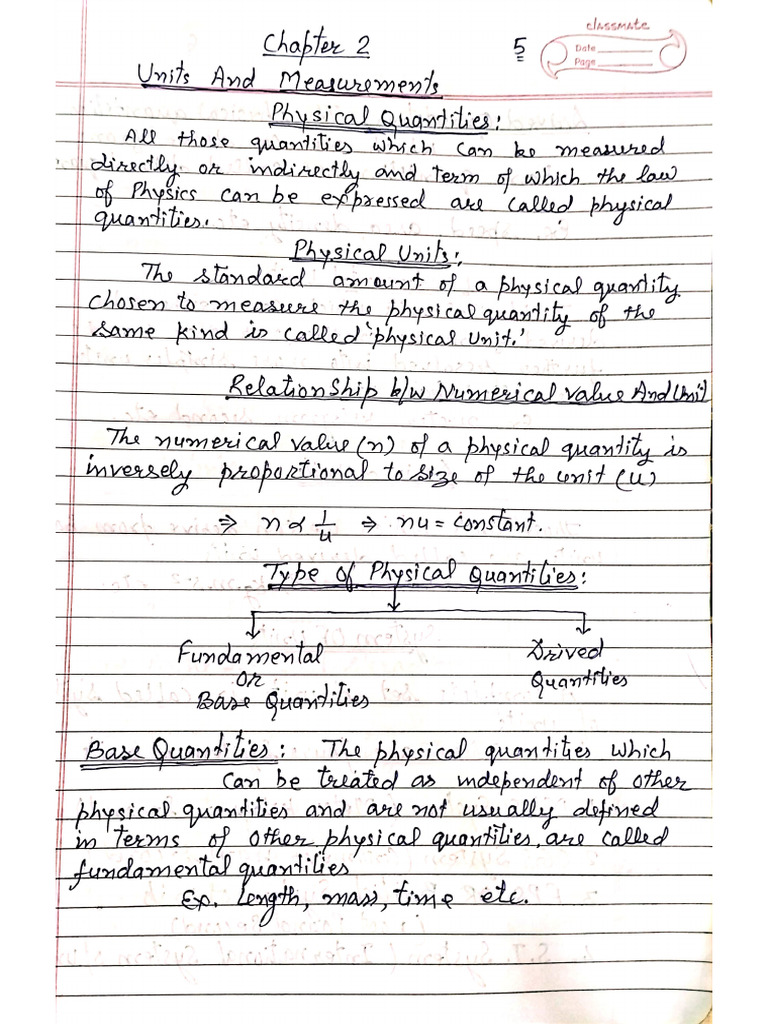 classmate
Date
Page
5
Chapter 2
Units And Measurements
Physical Quantities:
All those quantities which can be measured
directly or indirectly and term of which the law
of Physics can be expressed are called physical
quantities.
Physical Units:
The standard amount of a physical quantity
chosen to measure the physical quantity of the
same kind is called 'physical unit.'
Relationship b/w Numerical value And Unit
The numerical value (n) of a physical quantity is
inversely proportional to size of the unit (u)
⇒ n ∝ 1/u ⇒ nu = constant.
Type of Physical Quantities:
Fundamental
or
Base Quantities
Drived
Quantities
Base Quantities: The physical quantities which
can be treated as independent of other
physical quantities and are not usually defined
in terms of other physical quantities, are called
fundamental quantities
Exp. length, mass, time etc.